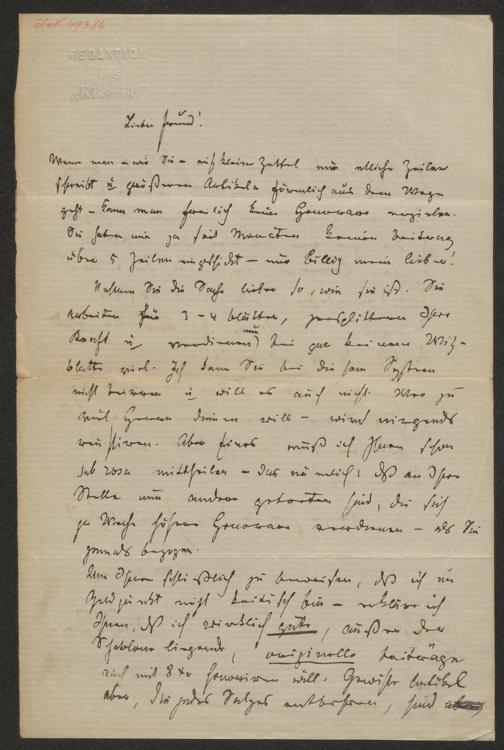 REDAKTION
des
„Kikeriki"
Lieber Freund!
Wenn man – wie Sie – auf kleine Zettel nur etliche Zeilen
schreibt u größeren Artikeln förmlich aus dem Wege
geht – kann man freilich kein Honorare erzielen.
Sie haben mir ja seit Monaten keinen Beitrag
über 5 Zeilen eingeschickt – nur billig mein Lieber!
Nehmen Sie die Sache lieber so, wie sie ist. Sie
arbeiten für 3–4 Blätter, zersplittern Ihre
Kraft u verdienen nun bei gar keinem Witz-
blatte viel. Ich kann Sie bei diesem System
nicht u will es auch nicht. Wer zu
viel Herren dienen will – wird nirgends
reüssiren. Aber Eines muß ich Ihnen schon
sub rosa mittheilen – das nämlich: daß an Ihre
Stelle nun andere getreten sind, die sich
pr Woche höhere Honorare verdienen – als Sie
jemals bezogen.
Um Ihnen schließlich zu beweisen, daß ich im
Geldpunkt nicht bin – erkläre ich
Ihnen, daß ich wirklich gute, außer der
Schablone liegende, originelle Beiträge
auch mit 8 kr honoriren will. Gewisse Artikel
aber, die jedes Salzes entbehren, sind